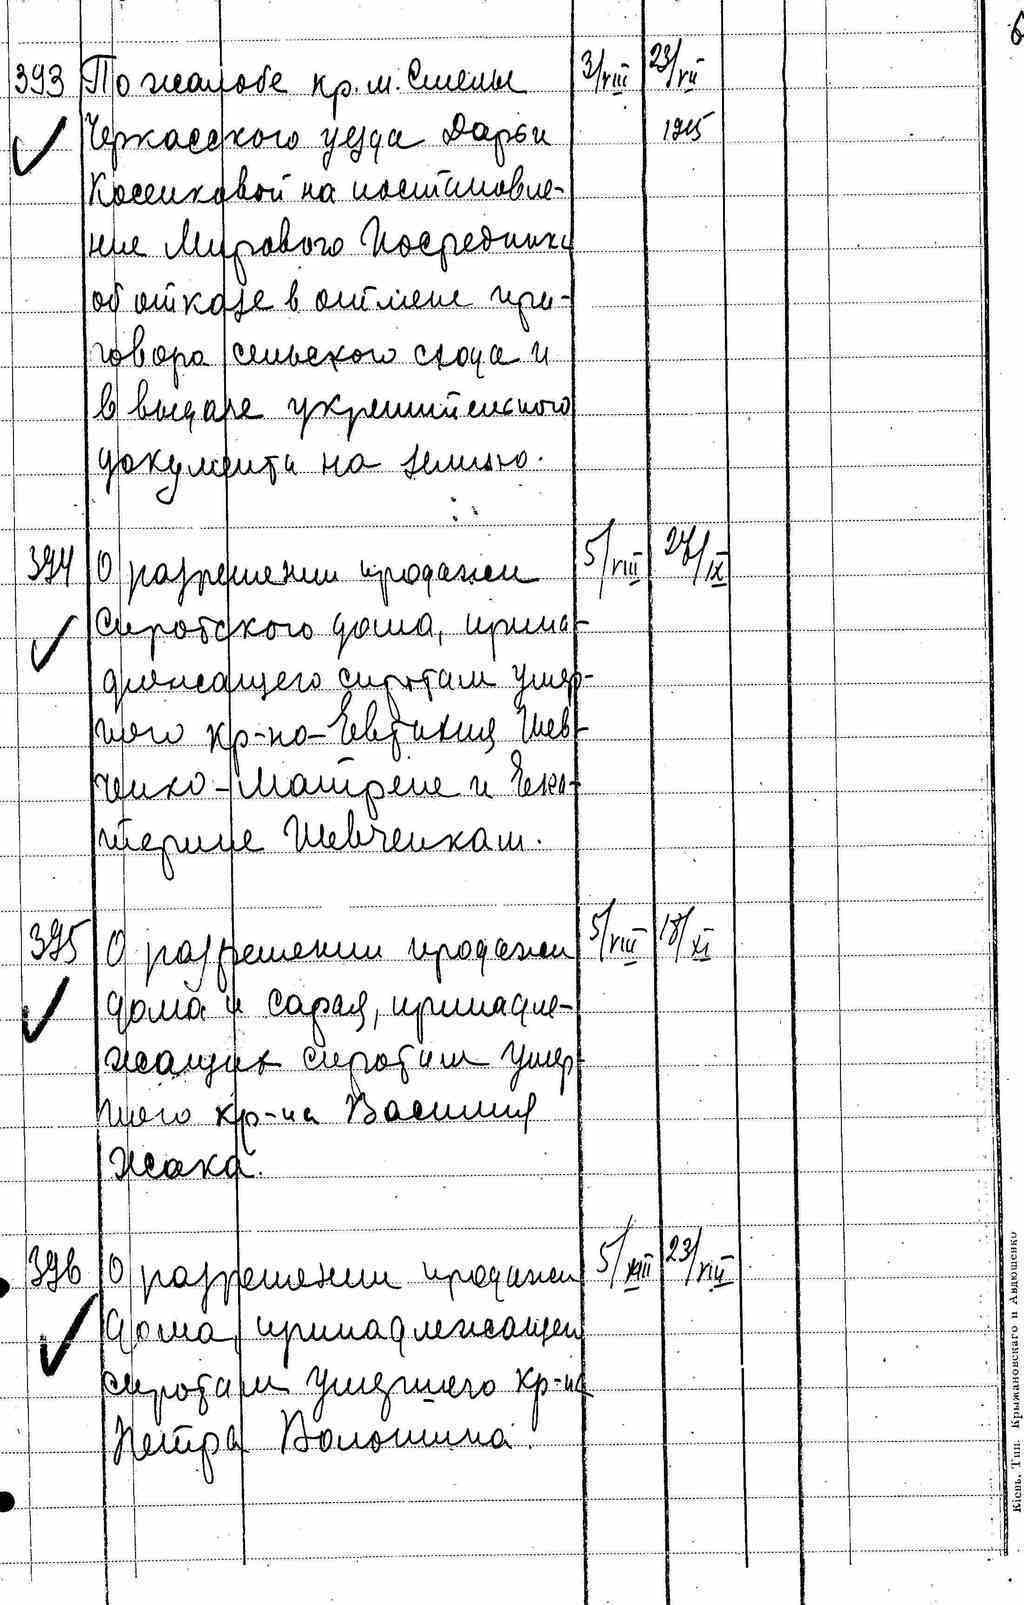 393 По жалобе кр. м. Смелы 3/VIII 23/VII
Черкасского уезда Дарьи 1915
Косенковой на постановле-
ние Мирового Посредника
об отказе в отмене при-
говора сельского схода и
в выдаче укрепительного
документа на землю.
394 О разрешении продажи 5/VIII 27/IX
сиротского дома, прина-
длежащего сиротам умер-
шего кр-на-Евтихия Шев-
ченко-Матрене и Ека-
терине Шевченкам.
395 О разрешении продажи 5/VIII 18/XI
дома и сарая, принадле-
жащих сиротам умер-
шего кр-на Василия
Исака.
396 О разрешении продажи 5/VIII 23/VIII
дома, принадлежащем
сиротам умершего кр-на
Петра Волошина.
Кіевъ, Тип. Крыжановскаго и Авдюшенко